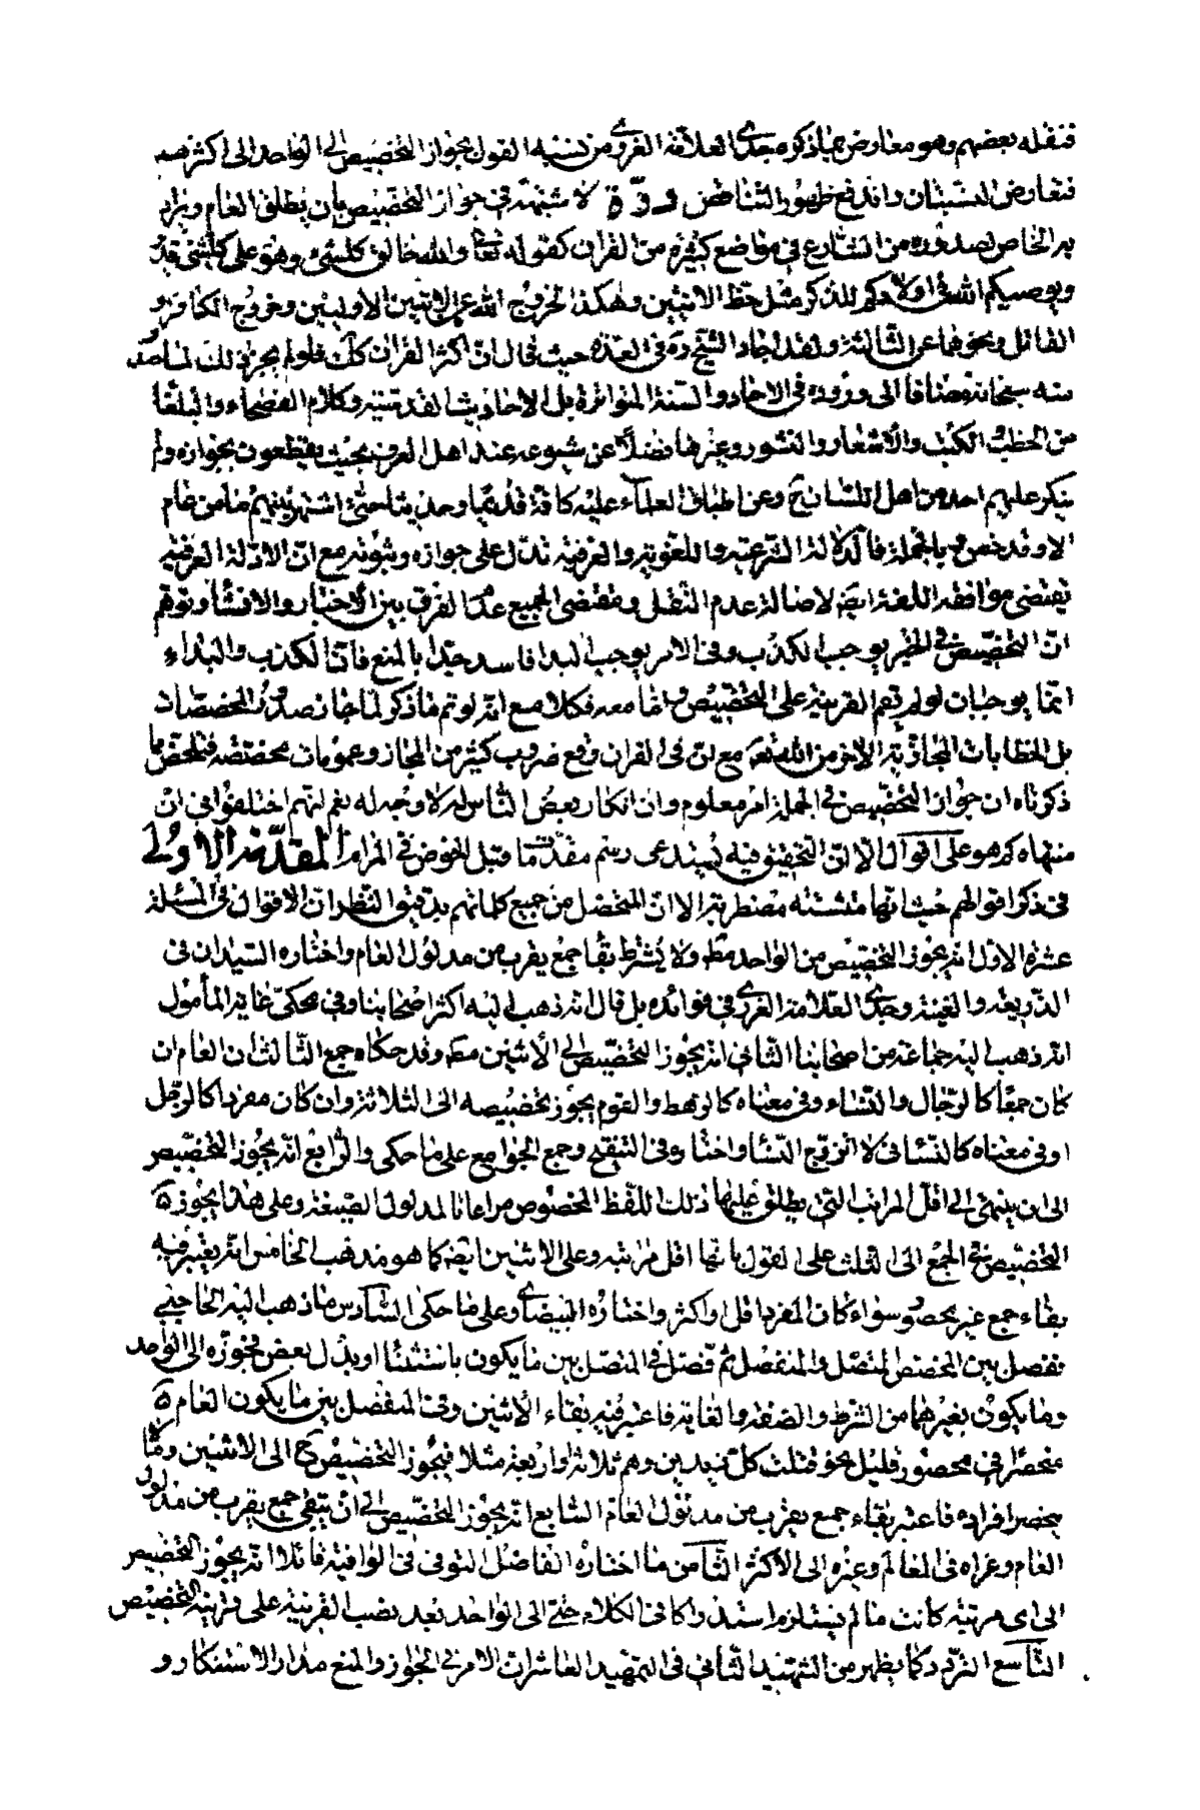 فنقله بعضهم وهو معارض بما ذكره جدي العلامة الغروي من نسبة القول بجواز التخصيص الى الواحد الى اكثرهم
فتعارض النسبتان واندفع ظهور التناقض لا شبهة في جواز التخصيص بان يطلق العام ويراد
به الخاص لصدوره من الشارع في مواضع كثيرة من القران كقوله تعالى والله خالق كلشئ وهو على كلشئ قدير
ويوصيكم الله في اولادكم للذكر مثل حظ الانثيين وهكذا لخروج الله عن الايتين الاوليين وخروج الكافر و
القاتل ونحوهما عن الثالثة ولقد اجاد الشيخ ره في العدة حيث قال ان اكثر القران كك فلو لم يجز ذلك لما صدر
منه سبحانه مضافا الى وروده في الاخبار والسنة المتواترة بل الاحاديث القدسية وكلام الفصحاء والبلغاء
من الخطب والكتب والاشعار والنشور وغيرها فضلا عن شيوعه عند اهل العرف بحيث يقطعون بجوازه ولم
ينكر عليهم احد من اهل اللسان وعن اطباق العلماء عليه كافة قديما وحديثا حتى اشتهر بينهم ما من عام
الا وقد خص وبالجملة فالادلة الشرعية واللغوية والعرفية تدل على جوازه وثبوته مع ان الادلة العرفية
تقتضي موافقة اللغة ايضا لاصالة عدم النقل ومقتضى الجميع عدم الفرق بين الاخبار والانشاء وتوهم
ان التخصيص في الخبر يوجب الكذب وفي الامر يوجب البداء فاسد جدا بالمنع فان الكذب والبداء
انما يوجبان لو لم تقم القرينة على التخصيص واما معه فكلا مع انه لو تم ما ذكر لما جاز صدور المخصصات
بل الخطابات المجازية الاخر من الله تعالى مع ان في القران وقع ضروب كثير من المجاز وعمومات مخصصة فتلخص مما
ذكرناه ان جواز التخصيص في الجملة امر معلوم وان انكار بعض الناس له لا وجه له نعم انهم اختلفوا في ان
منتهاه كم هو على اقوال الا ان التحقيق فيه يستدعي رسم مقدمات قبل الخوض في المرام المقدمة الاولى
في ذكر اقوالهم حيث انها متشتتة مضطربة الا ان المتحصل من جميع كلماتهم بدقيق النظر ان الاقوال في المسئلة
عشرة الاول انه يجوز التخصيص من الواحد مط ولا يشترط بقاء جمع يقرب من مدلول العام واختاره السيدان في
الذريعة والغنية وجدي العلامة الغروي في فوائده بل قال انه ذهب اليه اكثر اصحابنا وفي محكي غاية المأمول
انه ذهب اليه جماعة من اصحابنا الثاني انه يجوز التخصيص الى الاثنين مط وقد حكاه جمع الثالث ان العام ان
كان جمعا كالرجال والنساء وفي معناه كالرهط والقوم يجوز تخصيصه الى الثلاثة وان كان مفردا كالرجل
او في معناه كالنساء في لا اتزوج النساء واختاره في التنقيح وجمع الجوامع على ما حكي والرابع انه يجوز التخصيص
الى ان ينتهي الى اقل المراتب التي يطلق عليها ذلك اللفظ المخصوص مراعاتا لمدلول الصيغة وعلى هذا يجوز
التخصيص في الجمع الى الثلث على القول بانها اقل مراتبه وعلى الاثنين ايضا كما هو مذهب الخامس انه يعتبر فيه
بقاء جمع غير محصور سواء كان المفرد اقل او اكثر واختاره البيضاوي على ما حكي السادس ما ذهب اليه الحاجبي
تفصل بين المخصص المتصل والمنفصل ثم فصل في المتصل بين ما يكون باستثناء او بدل بعض فجوزه الى الواحد
وما يكون بغيرهما من الشرط والصفة والغاية فاعتبر فيه بقاء الاثنين وفي المنفصل بين ما يكون العام
منحصرا في محصور قليل نحو قتلت كل زنديق وهم ثلاثة او اربعة مثلا فيجوز التخصيص ح الى الاثنين وما
ينحصر افراده فاعتبر بقاء جمع يقرب من مدلول العام السابع انه يجوز التخصيص الى ان يبقى جمع يقرب من مدلول
العام وعزاه في المعالم وغيره الى الاكثر الثامن ما اختاره الفاضل التوني في الوافية قائلا انه يجوز التخصيص
الى اى مرتبة كانت ما لم يستلزم استدراكا في الكلام حتى الى الواحد بعد نصب القرينة على قرينة التخصيص
التاسع التردد كما يظهر من الشهيد الثاني في التمهيد العاشر ان الامر في الجواز والمنع مدار الاستنكار و